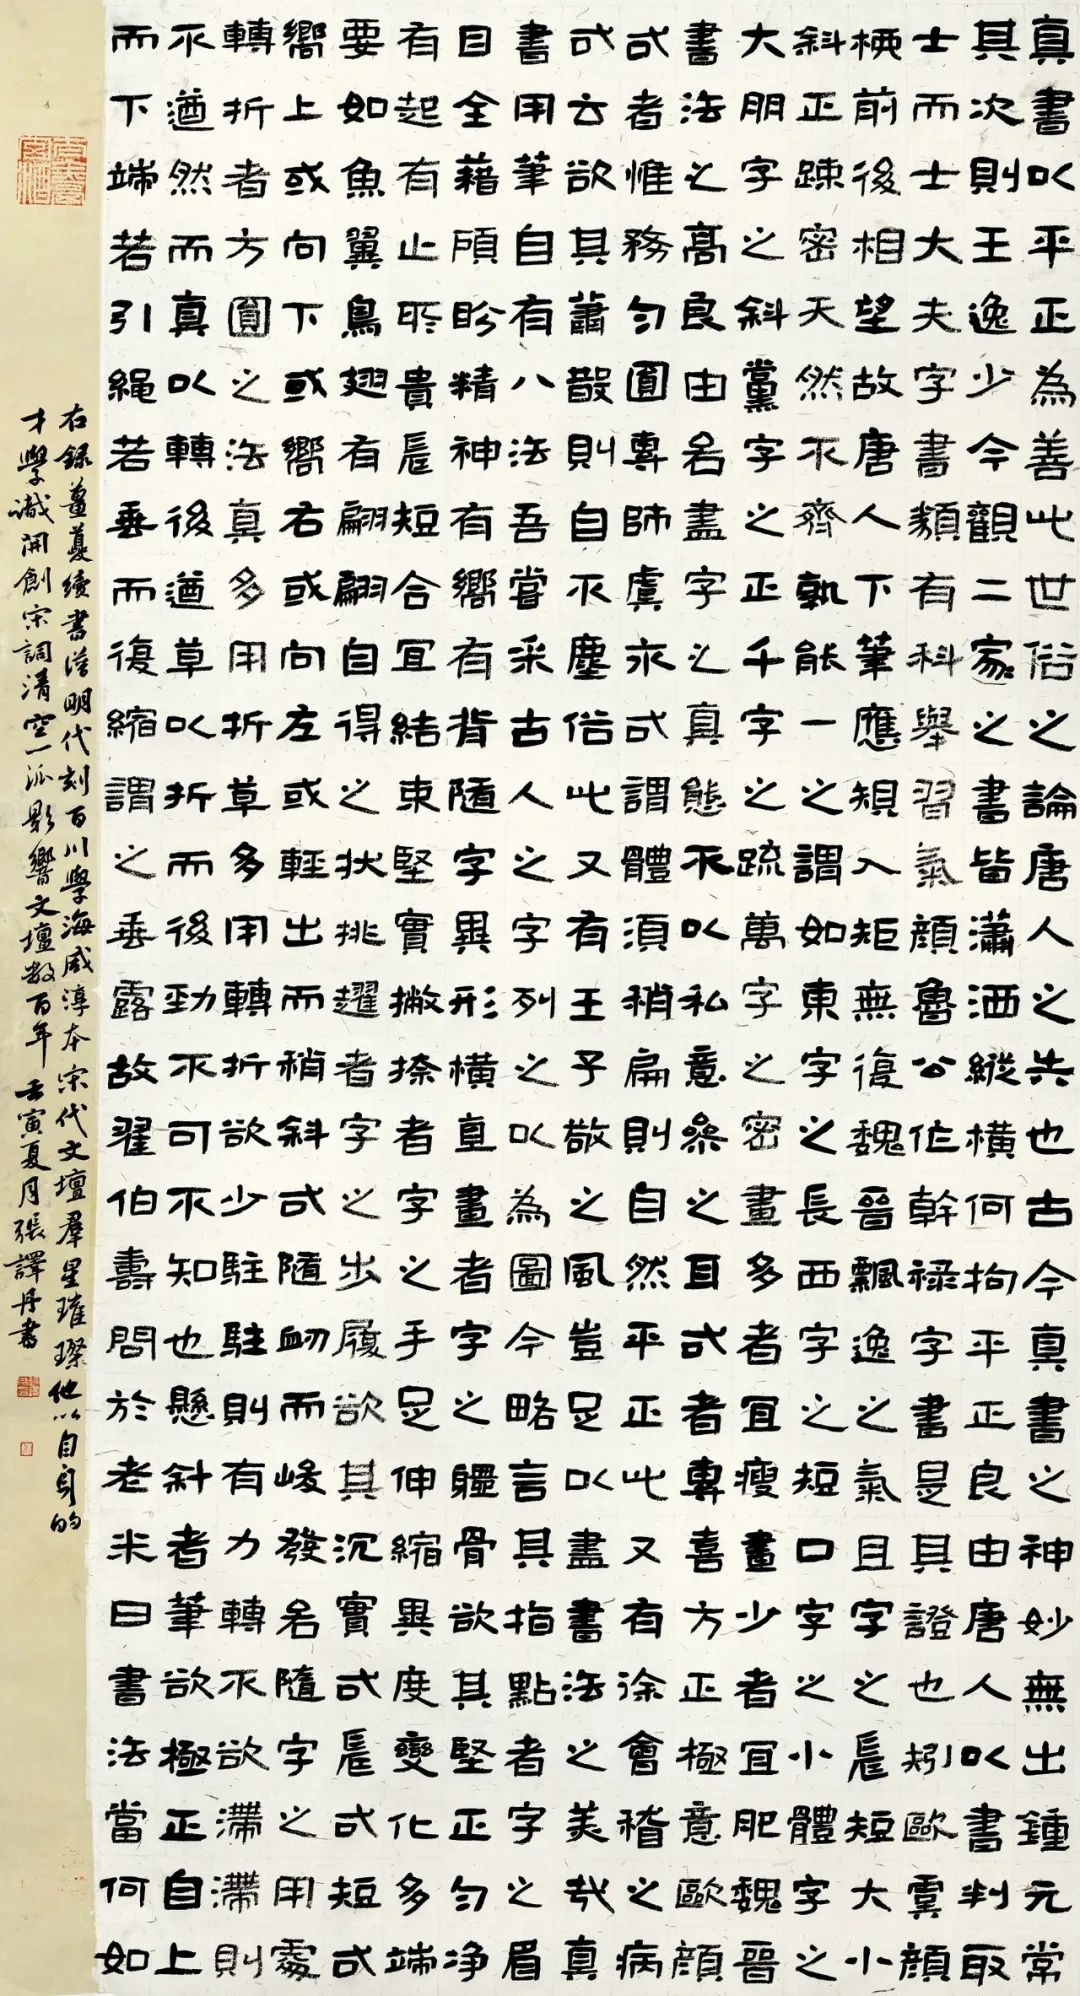 真書以平正為善此世俗之論唐人之失也古今真書之神妙無出鍾元常
其次則王逸少今觀二家之書皆瀟洒縱橫何拘平正良由唐人以書判取
士而士大夫字書類有科舉習氣顏魯公作幹祿字書是其證也矧歐虞顏
柳前後相望故唐人下筆應規入矩無復魏晉飄逸之氣且字之長短大小
斜正疎密天然不齊孰能一之謂如東字之長西字之短口字之小體字之
大朋字之斜黨字之正千字之疏萬字之密畫多者宜瘦畫少者宜肥魏晉
書法之高良由名盡字之真態不以私意參之耳或者專喜方正極意歐顏
或者惟務勻圓專師虞永或謂體須稍扁則自然平正此又有徐會稽之病
或云欲其蕭散則自不塵俗此又有王子敬之風豈足以盡書法之美哉真
書用筆自有八法吾嘗采古人之字列之以為圖今略言其指點者字之眉
目全藉顧盼精神有嚮有背隨字異形橫直畫者字之體骨欲其堅正勻净
有起有止所貴長短合宜結束堅實撇捺者字之手足伸縮異度變化多端
要如魚翼鳥翅有翩翩自得之狀挑趯者字之步履欲其沉實或長或短或
嚮上或向下或嚮右或向左或輕出而稍斜或隨衂而峻發名隨字之用處
轉折者方圓之法真多用折草多用轉折欲少駐駐則有力轉不欲滯滯則
不遒然而真以轉後遒草以折而後勁不可不知也懸針者筆欲極正自上
而下端若引繩若垂而復縮謂之垂露故翟伯壽問於老米曰書法當何如
右錄薑夔續書譜明代刻百川學海咸淳本宋代文壇羣星璀璨他以自身的
才學識開創宋詞清空一派影響文壇数百年 壬寅夏月張譯丹書